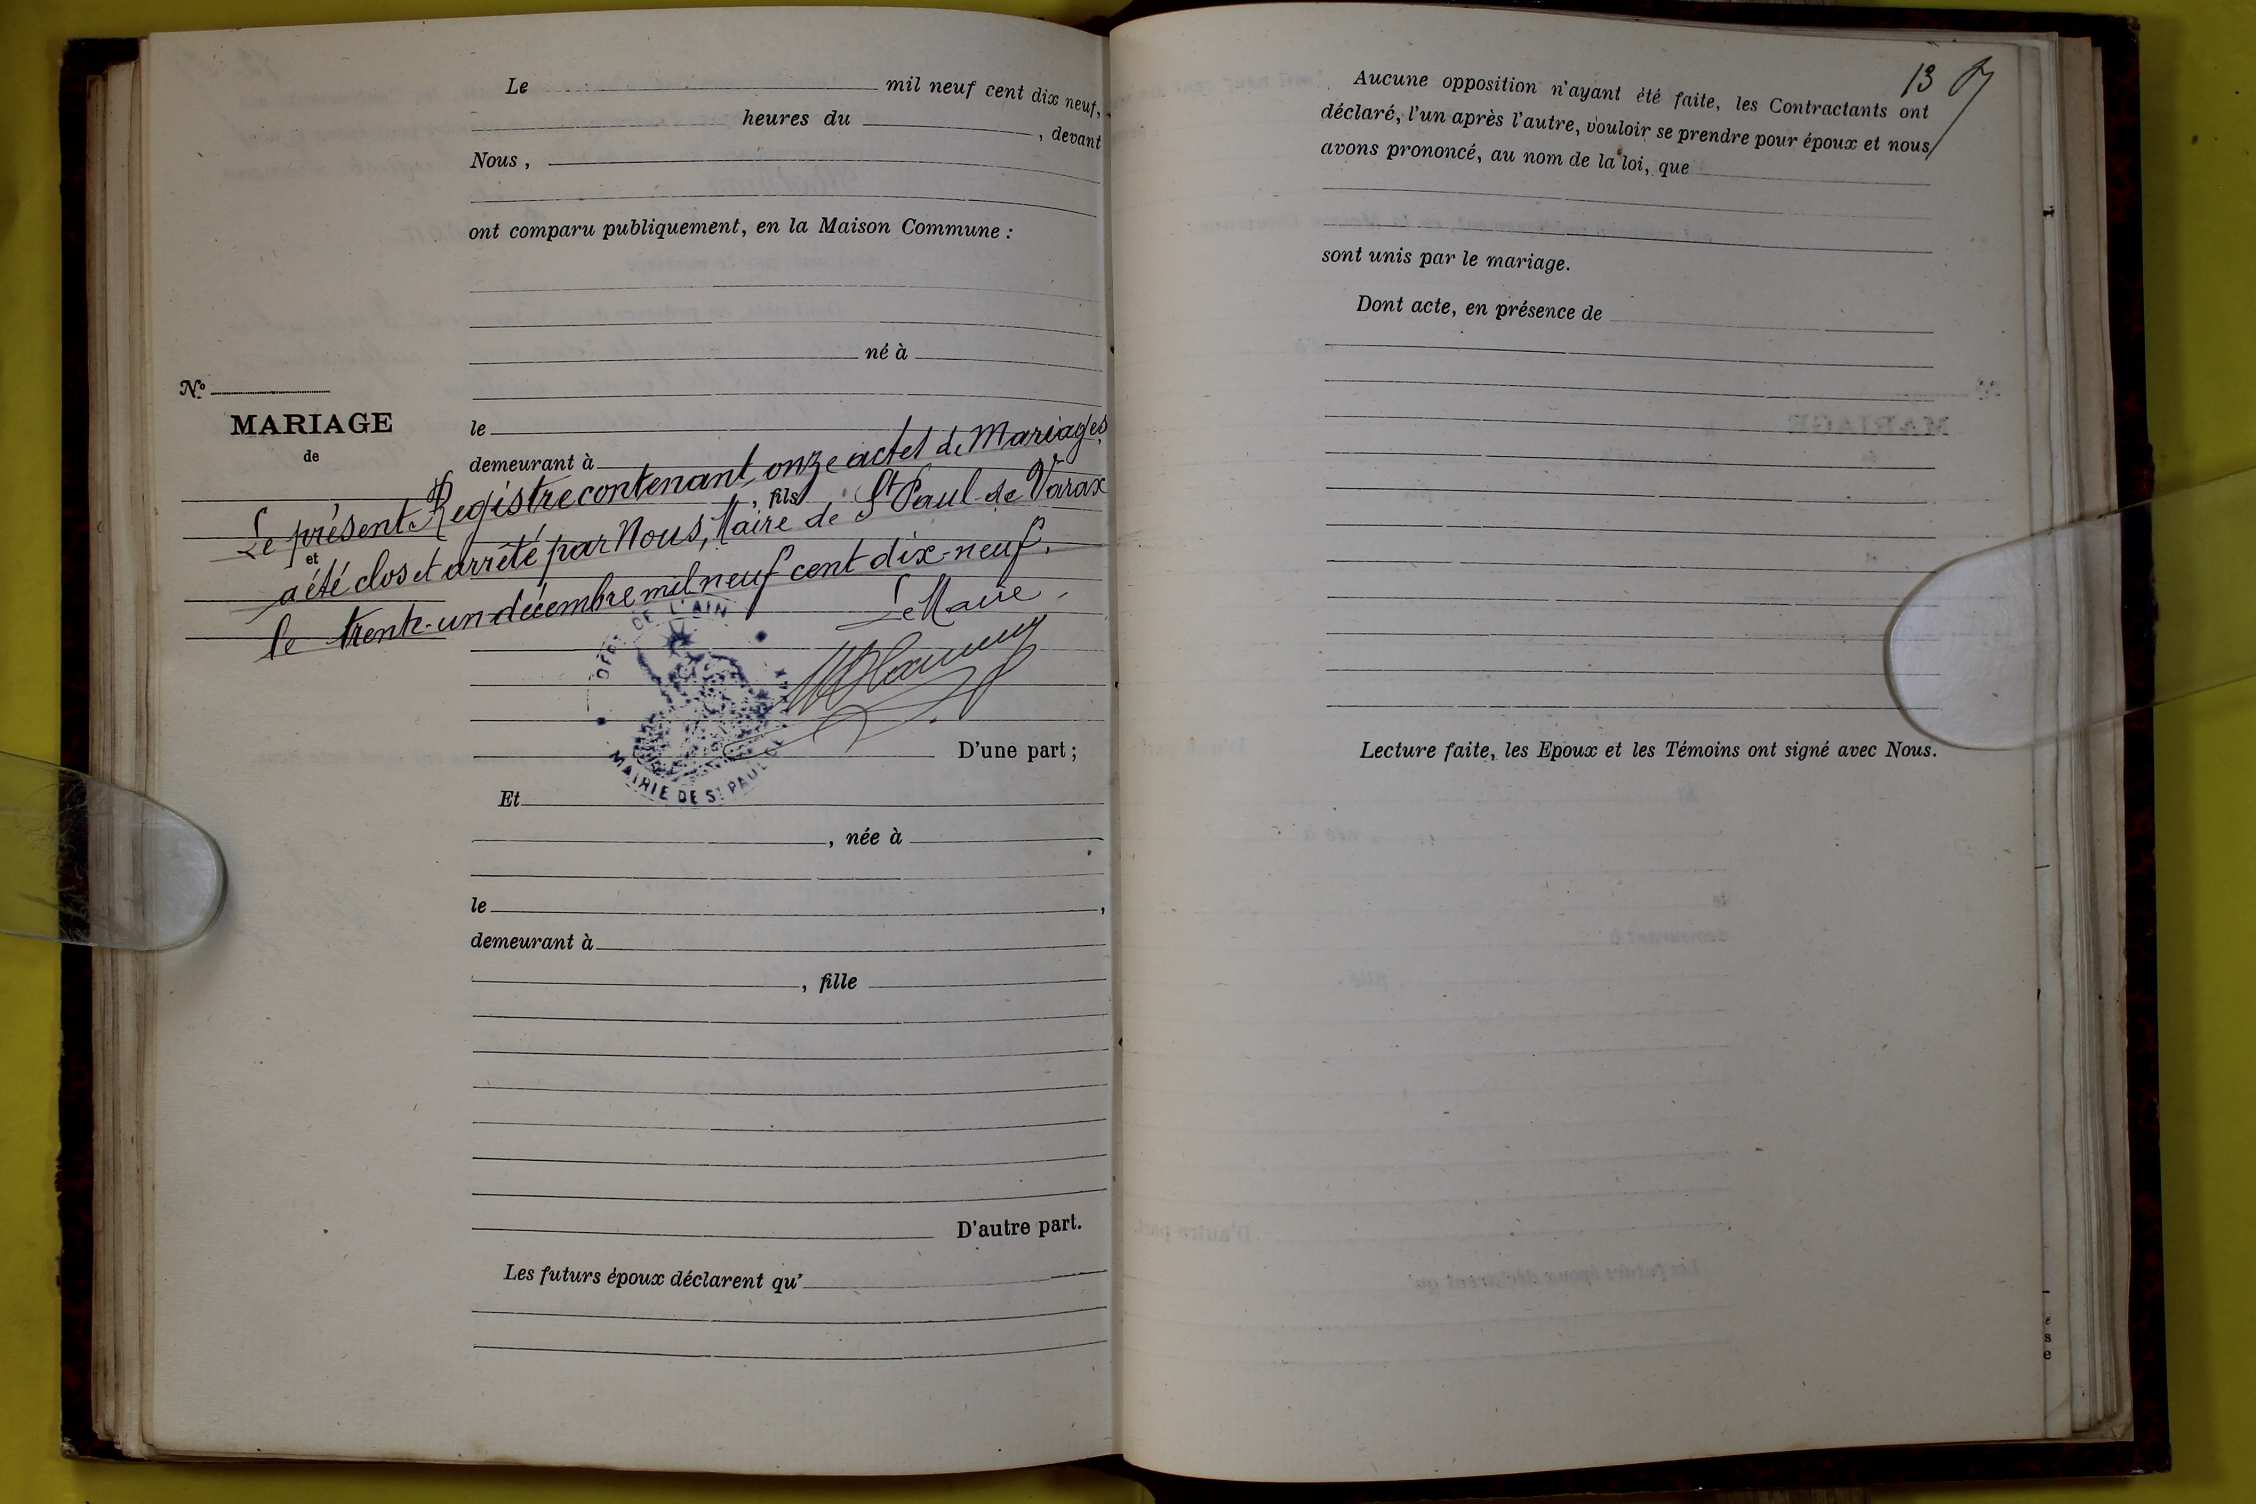 Le mil neuf cent dix neuf,
heures du , devant
Nous ,
ont comparu publiquement, en la Maison Commune :
né à
Nº
MARIAGE
de
et
le
demeurant à
, fils
Le présent Registre contenant onze actes de Mariages
a été clos et arrêté par Nous, Maire de St Paul-de Varax
le trente-un décembre mil neuf cent dix-neuf.
Le Maire
DÉPT DE L'AIN
MAIRIE DE ST PAUL
D'une part ;
Et
, née à
le ,
demeurant à
, fille
D'autre part.
Les futurs époux déclarent qu'
13
Aucune opposition n'ayant été faite, les Contractants ont
déclaré, l'un après l'autre, vouloir se prendre pour époux et nous
avons prononcé, au nom de la loi, que
sont unis par le mariage.
Dont acte, en présence de
Lecture faite, les Epoux et les Témoins ont signé avec Nous.